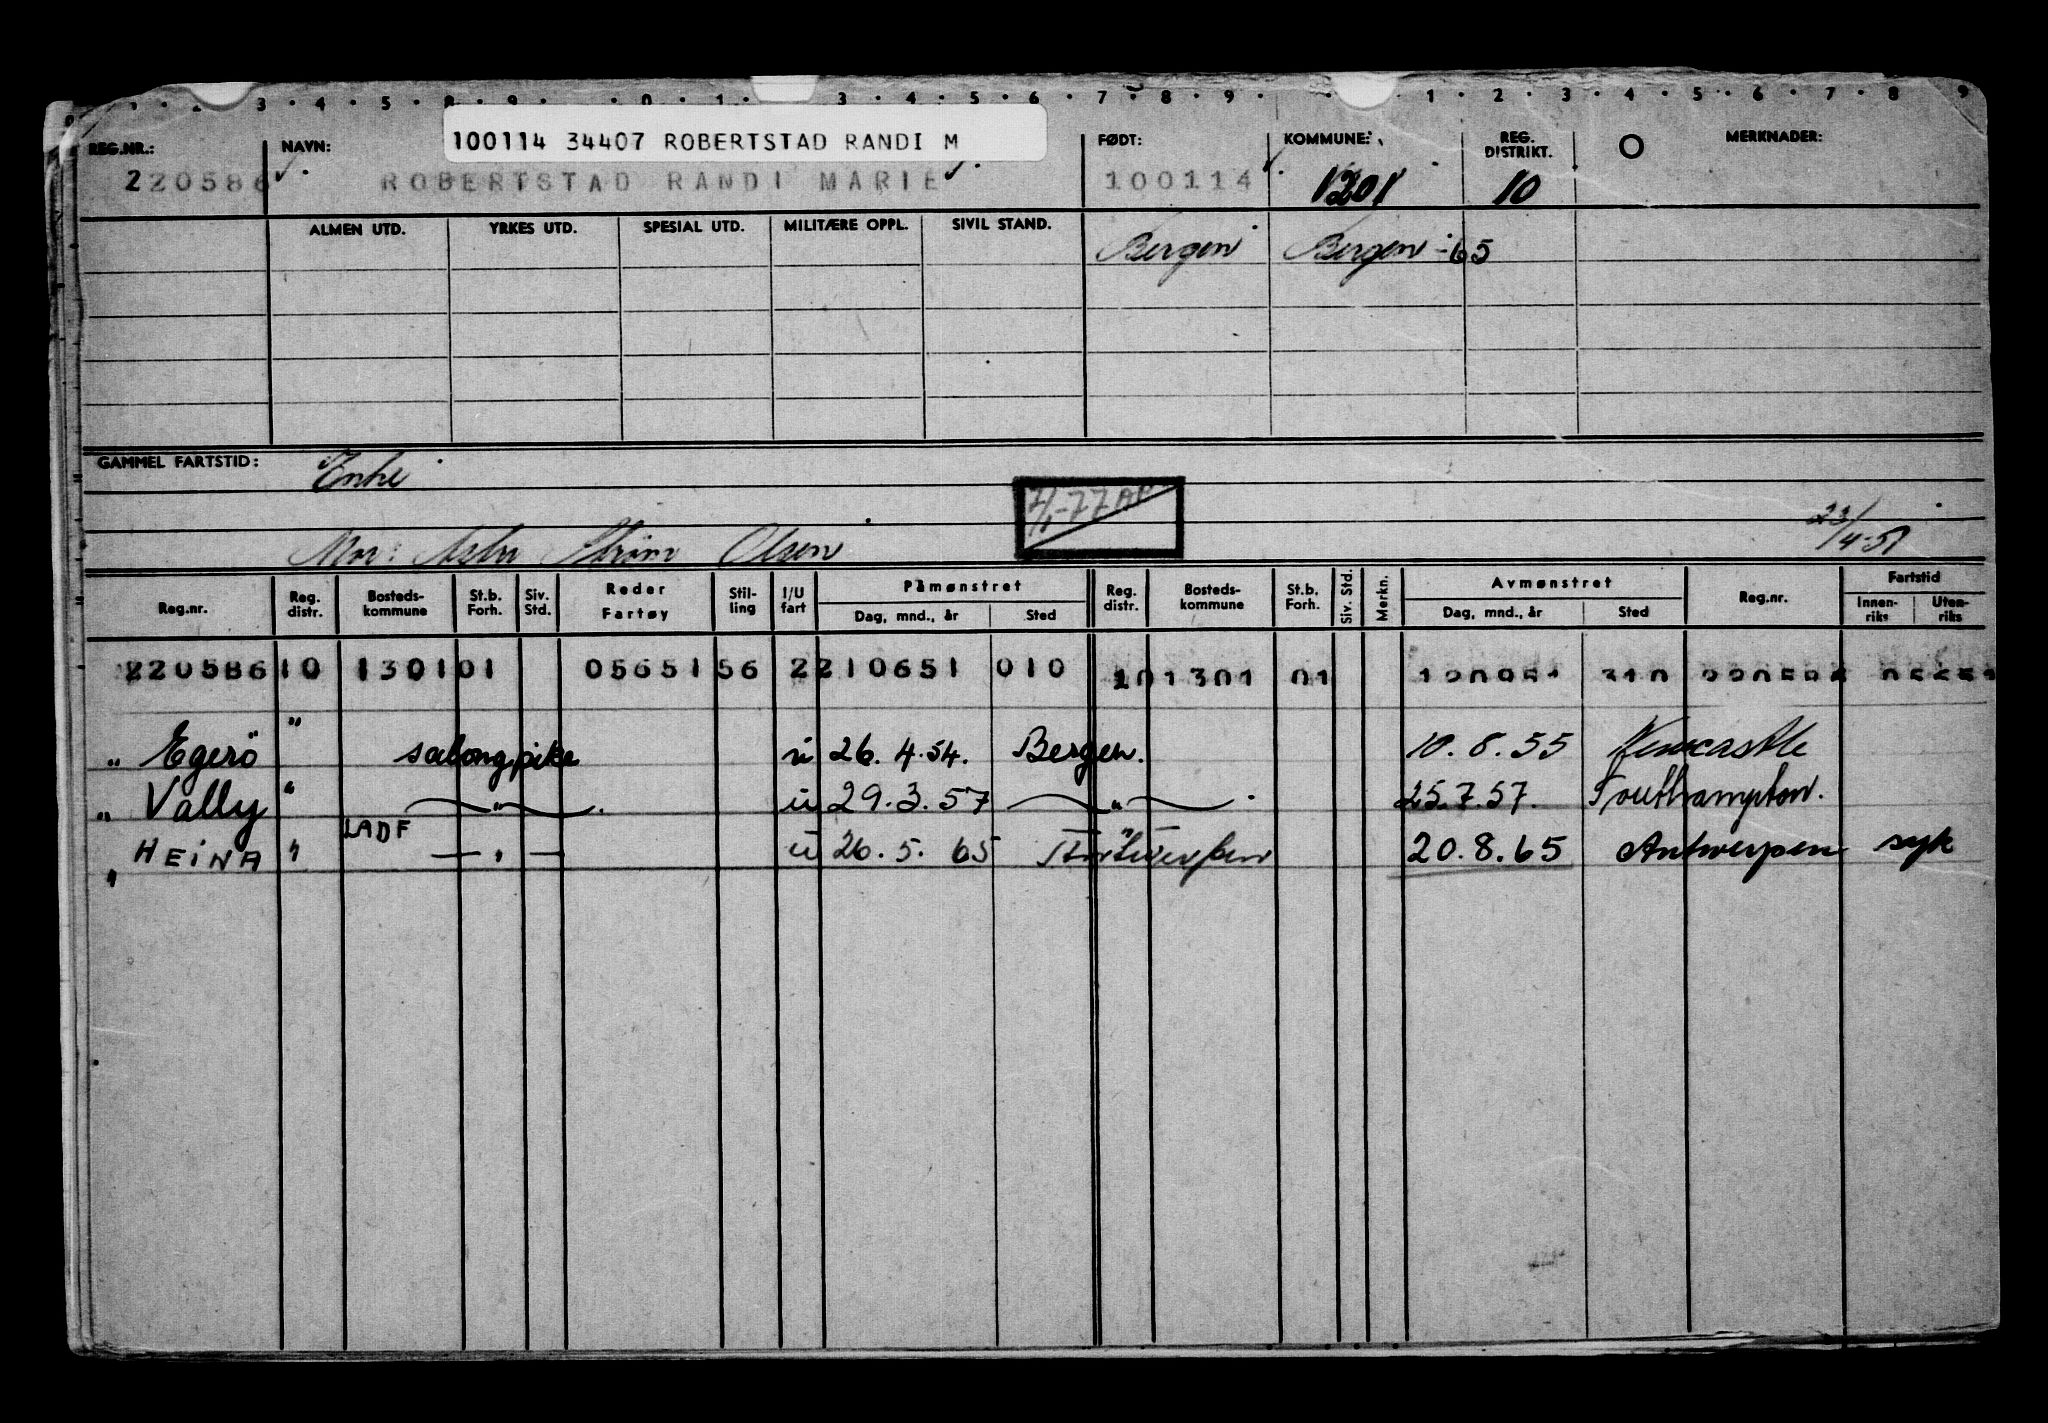 100114 34407 ROBERTSTAD RANDI M
REG.NR.: NAVN: FØDT: KOMMUNE: REG. DISTRIKT. MERKNADER:
220586 ROBERTSTAD RANDI MARIE 100114 1201 10
ALMEN UTD. YRKES UTD. SPESIAL UTD. MILITÆRE OPPL. SIVIL STAND. Bergen Bergen -65
GAMMEL FARTSTID: Enke
7/1-77
Mor: Olsen 23/4-51
Reg.nr. Reg. distr. Bosteds-kommune St.b. Forh. Siv. Std. Reder Fartøy Stil-ling I/U fart Påmønstret Dag, mnd., år Sted Reg. distr. Bosteds-kommune St.b. Forh. Siv. Std. Merkn. Avmønstret Dag, mnd., år Sted Reg.nr. Fartstid Innen-riks Uten-riks
220586 10 1301 01 05651 56 2 210651 010 10 1301 01 310
" Egerö " salongpike u 26.4.54. Bergen. 10.8.55 Newcastle
" Vally " " u 29.3.57 " 25.7.57. Southampton.
" HEINA " LADF " u 26.5.65 Antwerpen 20.8.65 Antwerpen syk